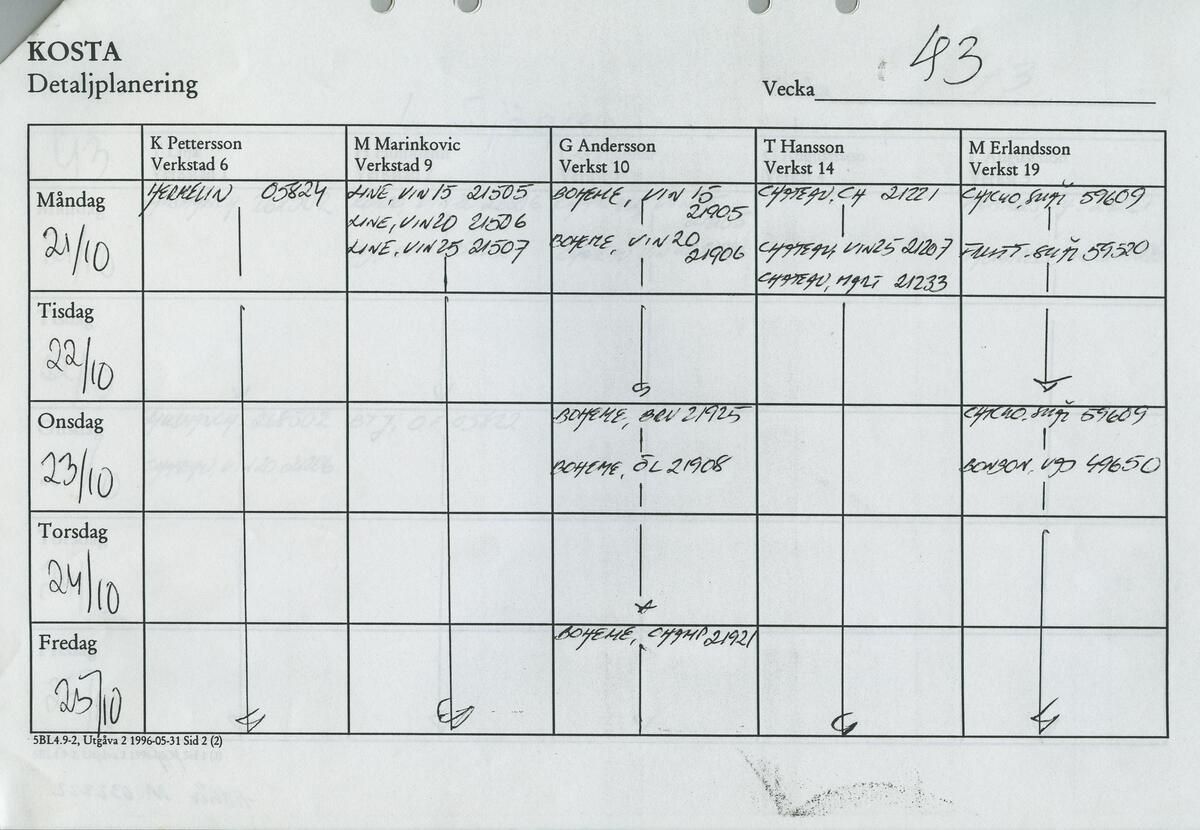 KOSTA
Detaljplanering
Vecka 43
K Pettersson
Verkstad 6
M Marinkovic
Verkstad 9
G Andersson
Verkst 10
T Hansson
Verkst 14
M Erlandsson
Verkst 19
Måndag
21/10
05824
LINE, VIN 15 21505
LINE, VIN 20 21506
LINE, VIN 25 21507
BOHEME, VIN 15
21905
BOHEME, VIN 20
21906
CHATEAU, CH 21221
CHATEAU, VIN 25 21207
CHATEAU, MART 21233
59609
59520
Tisdag
22/10
Onsdag
23/10
BOHEME, 21925
BOHEME, ÖL 21908
59609
49650
Torsdag
24/10
Fredag
25/10
BOHEME, CHAMP 21921
5BL4.9-2, Utgåva 2 1996-05-31 Sid 2 (2)